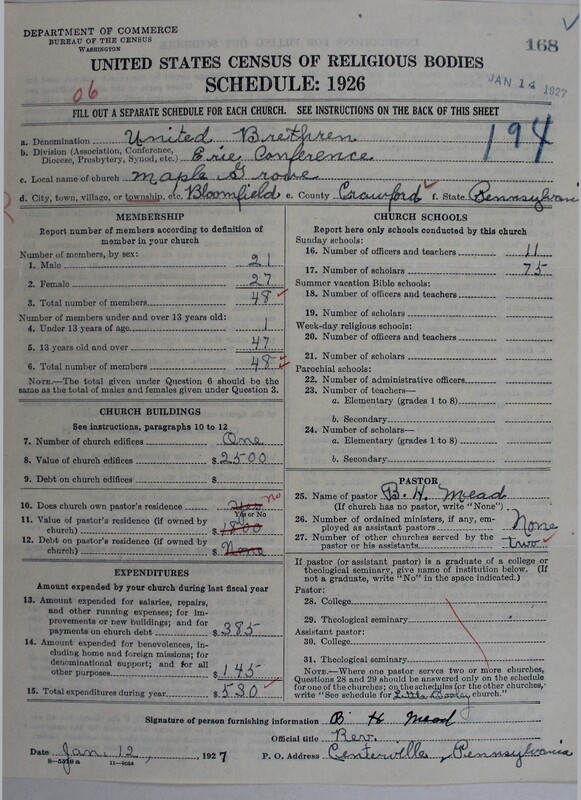 DEPARTMENT OF COMMERCE
BUREAU OF THE CENSUS
WASHINGTON
168
UNITED STATES CENSUS OF RELIGIOUS BODIES
SCHEDULE: 1926
06
JAN 14 1927
FILL OUT A SEPARATE SCHEDULE FOR EACH CHURCH. SEE INSTRUCTIONS ON THE BACK OF THIS SHEET
194
a. Denomination United Brethren
b. Division (Association, Conference, Diocese, Presbytery, Synod, etc.) Erie Conference
c. Local name of church Maple Grove
d. City, town, village, or township, etc. Bloomfield e. County Crawford f. State Pennsylvania
MEMBERSHIP
Report number of members according to definition of
member in your church
Number of members, by sex:
1. Male 21
2. Female 27
3. Total number of members 48
Number of members under and over 13 years old:
4. Under 13 years of age 1
5. 13 years old and over 47
6. Total number of members 48
NOTE.—The total given under Question 6 should be the
same as the total of males and females given under Question 3.
CHURCH BUILDINGS
See instructions, paragraphs 10 to 12
7. Number of church edifices One
8. Value of church edifices $ 2500
9. Debt on church edifices $
10. Does church own pastor's residence Yes no
Yes or No
11. Value of pastor's residence (if owned by
church) $ 1800
12. Debt on pastor's residence (if owned by
church) $ None
EXPENDITURES
Amount expended by your church during last fiscal year
13. Amount expended for salaries, repairs,
and other running expenses; for im-
provements or new buildings; and for
payments on church debt $ 385
14. Amount expended for benevolences, in-
cluding home and foreign missions; for
denominational support; and for all
other purposes $ 145
15. Total expenditures during year $ 530
CHURCH SCHOOLS
Report here only schools conducted by this church
Sunday schools:
16. Number of officers and teachers 11
17. Number of scholars 75
Summer vacation Bible schools:
18. Number of officers and teachers
19. Number of scholars
Week-day religious schools:
20. Number of officers and teachers
21. Number of scholars
Parochial schools:
22. Number of administrative officers
23. Number of teachers—
a. Elementary (grades 1 to 8)
b. Secondary
24. Number of scholars—
a. Elementary (grades 1 to 8)
b. Secondary
PASTOR
25. Name of pastor B. H. Mead
(If church has no pastor, write "None")
26. Number of ordained ministers, if any, em-
ployed as assistant pastors None
27. Number of other churches served by the
pastor or his assistants two
If pastor (or assistant pastor) is a graduate of a college or
theological seminary, give name of institution below. (If
not a graduate, write "No" in the space indicated.)
Pastor:
28. College
29. Theological seminary
Assistant pastor:
30. College
31. Theological seminary
NOTE.—Where one pastor serves two or more churches,
Questions 28 and 29 should be answered only on the schedule
for one of the churches; on the schedules for the other churches,
write "See schedule for Little Cooley church."
Signature of person furnishing information B. H Mead
Official title Rev.
Date Jan. 12, 1927 P. O. Address Centerville, Pennsylvania
8—5518 a 11—9084